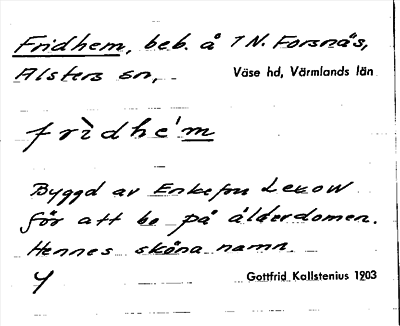 Fridhem, beb. å 1 N. Forsnäs,
Alsters sn, Väse hd, Värmlands län
frìdhe'm
Byggd av Enkefru Lexow
för att bo på ålderdomen.
Hennes sköna namn.
Gottfrid Kallstenius 1903